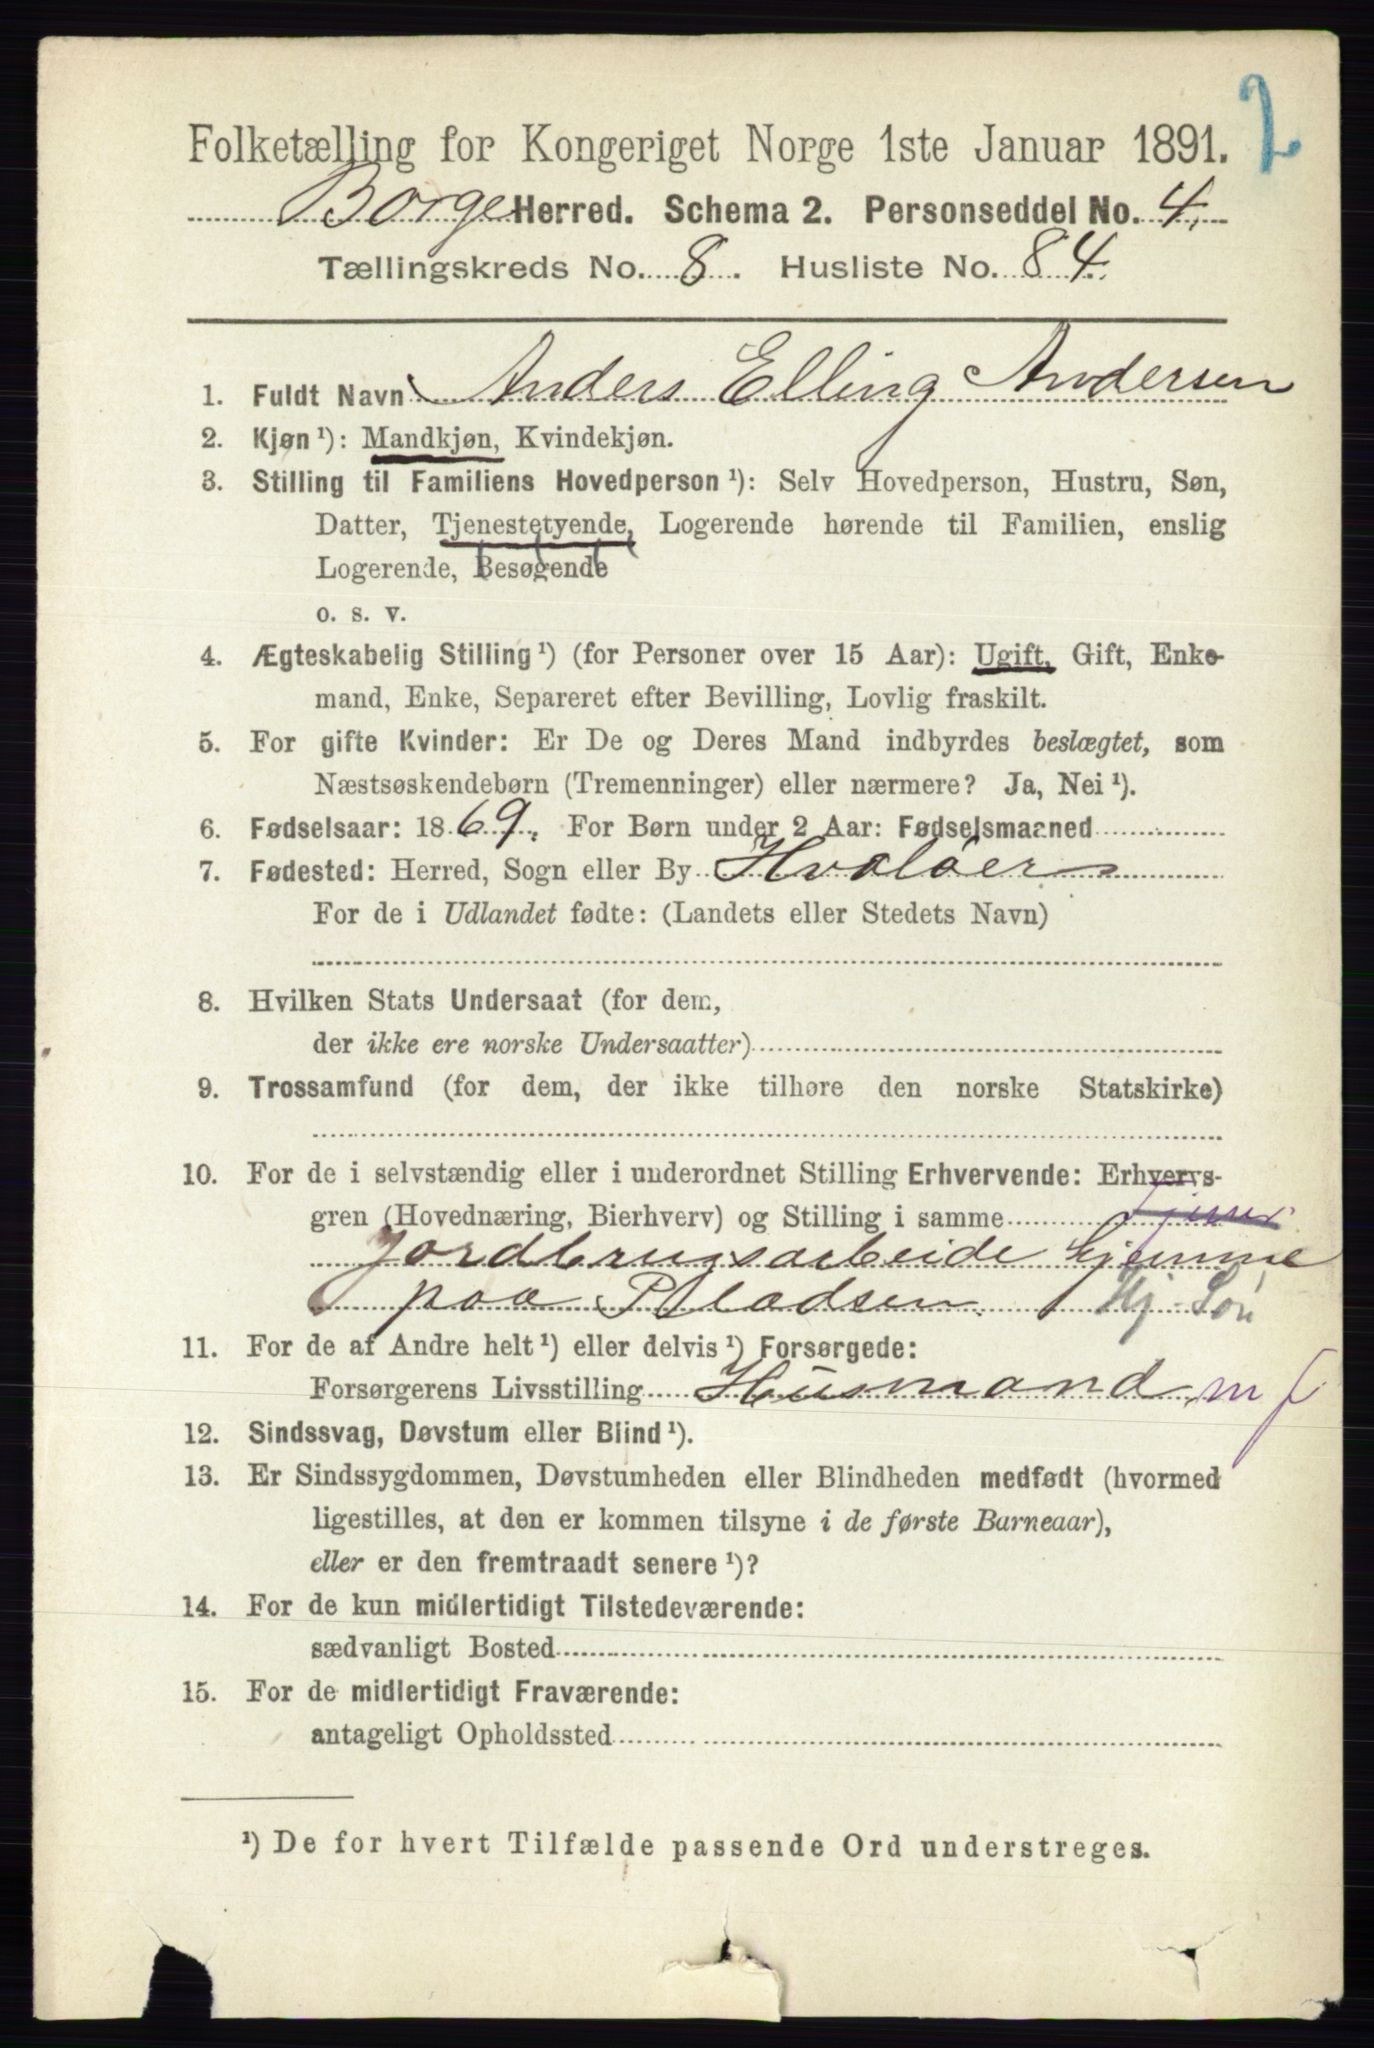 2
Folketælling for Kongeriget Norge 1ste Januar 1891.
Borge Herred. Schema 2. Personseddel No. 4.
Tællingskreds No. 8. Husliste No. 84.
1. Fuldt Navn Anders Elling Andersen
2. Kjøn¹): Mandkjøn, Kvindekjøn.
3. Stilling til Familiens Hovedperson¹): Selv Hovedperson, Hustru, Søn,
Datter, Tjenestetyende, Logerende hørende til Familien, enslig
Logerende, Besøgende
o. s. v.
4. Ægteskabelig Stilling¹) (for Personer over 15 Aar): Ugift, Gift, Enke-
mand, Enke, Separeret efter Bevilling, Lovlig fraskilt.
5. For gifte Kvinder: Er De og Deres Mand indbyrdes beslægtet, som
Næstsøskendebørn (Tremenninger) eller nærmere? Ja, Nei¹).
6. Fødselsaar: 1869. For Børn under 2 Aar: Fødselsmaaned
7. Fødested: Herred, Sogn eller By Hvaløer
For de i Udlandet fødte: (Landets eller Stedets Navn)
8. Hvilken Stats Undersaat (for dem,
der ikke ere norske Undersaatter)
9. Trossamfund (for dem, der ikke tilhøre den norske Statskirke)
10. For de i selvstændig eller i underordnet Stilling Erhvervende: Erhvervs-
gren (Hovednæring, Bierhverv) og Stilling i samme
Jordbrugsarbeide hjemme
paa Pladsen. Hj. Søn
11. For de af Andre helt¹) eller delvis¹) Forsørgede:
Forsørgerens Livsstilling Husmand m f
12. Sindssvag, Døvstum eller Blind¹).
13. Er Sindssygdommen, Døvstumheden eller Blindheden medfødt (hvormed
ligestilles, at den er kommen tilsyne i de første Barneaar),
eller er den fremtraadt senere¹)?
14. For de kun midlertidigt Tilstedeværende:
sædvanligt Bosted
15. For de midlertidigt Fraværende:
antageligt Opholdssted
¹) De for hvert Tilfælde passende Ord understreges.